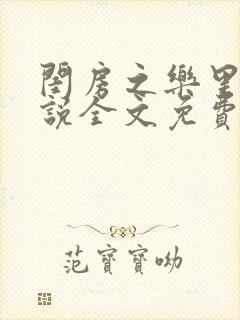 閨房之樂里
說全文免費
范寶寶呦